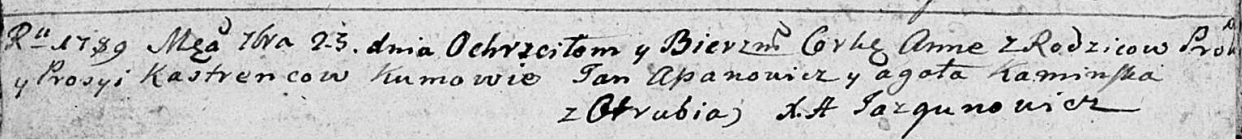 Ru 1789 Mca 7bra 23. dnia Ochrzciłem y Bierzm Corkę Anne z Rodzicow
y Prosyi Kastrencow Kumowie Jan Apanowicz y agata Kaminska
z Otrubia) X. A Jazgunowicz